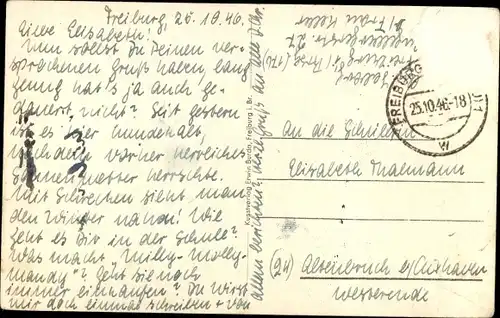 Freiburg, 25.10.46.
Liebe Elisabeth!
Nun sollst Du Deinen ver-
sprochenen Gruß haben, lang
genug hat's ja auch ge-
dauert, nicht? Seit gestern
ist es hier hundekalt,
nachdem vorher herrliches
Sonnenwetter herrschte.
Mit Schrecken sieht man
den Winter nahn! Wie
geht es Dir in der Schule?
Was macht "Milly-Molly-
Mandy"? Geht sie noch
immer einkaufen? Du wirst
mir doch einmal schreiben + von
allem berichten? Herzl. Gruß an alle
Kunstverlag Erwin Burda, Freiburg i. Br.
Freiburg i/
b/ Frau
FREIBURG
25.10.46.-18
w
An die Schülerin
Elisabeth Thalmann
(24) Altenbruch b/Cuxhaven
Westerende